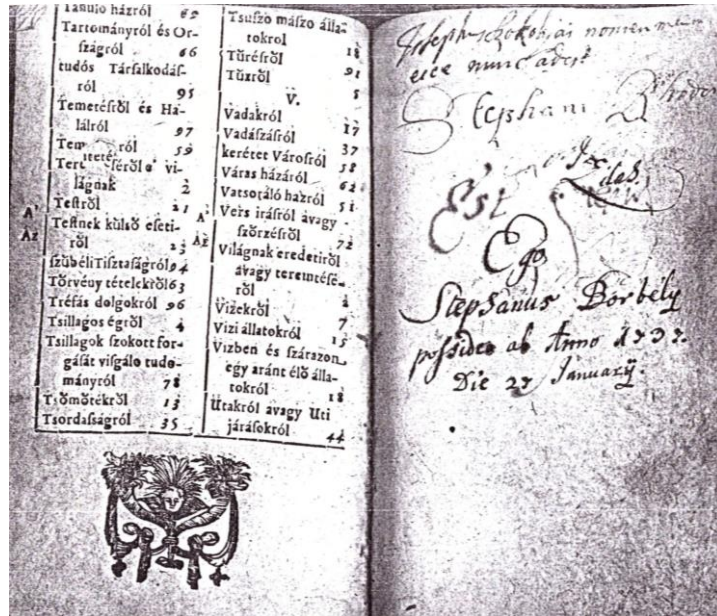 Tanuló házról 69
Tartományról és Or-
szágról 66
tudós Társalkodás-
ról 95
Temetésről és Ha-
lálról 97
Tem ról 59
vi-
lágnak 2
A' Testről 21
Az Testnek kulső eseti-
ről 23
szűbéli Tisztaságról 94
Törvény tételekről 63
Tréfás dolgokról 96
Tsillagos égről 4
Tsillagok szokott for-
gását visgálo tudo-
mányról 78
Tsömötékről 13
Tsordasságról 35
Tsuszo mászo álla-
tokrol 18
Tűrésről 91
Tűzről 5
V.
Vadakról 17
Vadászásról 37
kerétet Városról 58
Város házáról 62
Vatsoráló hazról 51
A' Vers irásról avagy
szörzésről 72
Az Világnak eredetiről
avagy teremtésé-
ről 2
Vizekről 7
Vizi állatokról 15
Vizben és szárazon
egy aránt élő álla-
tokról 18
Utakról avagy Uti
járásokról 44
nomen
nunc adest
Stephani
Est
Ego
Stephanus Borbély
possideo ab Anno 1737.
Die 27 Januarij.